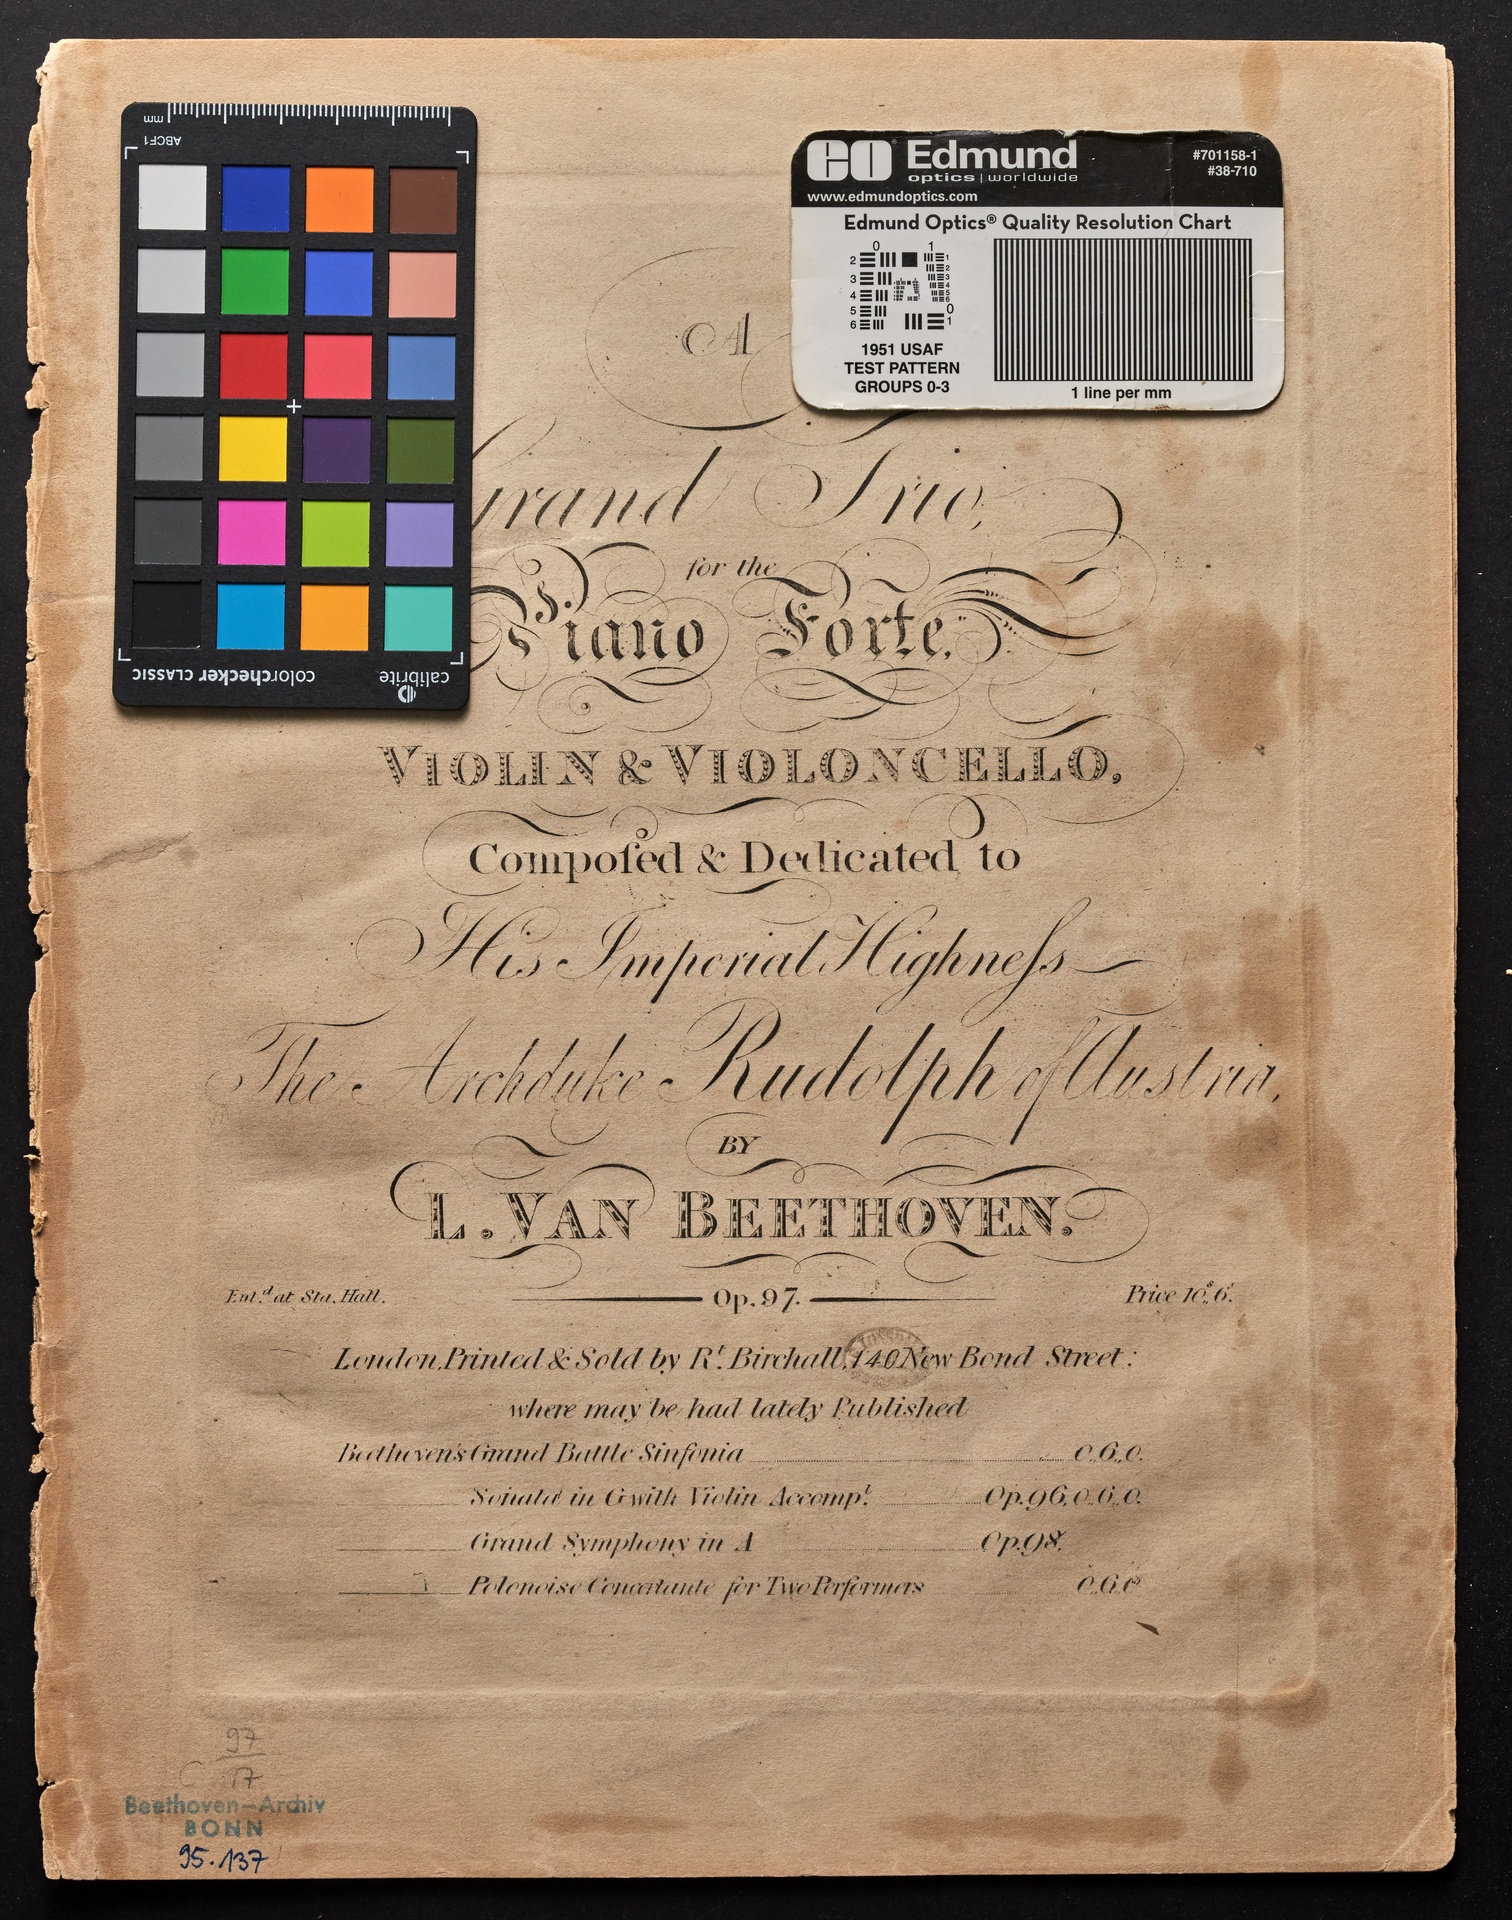 mm
ABCF1
colorchecker CLASSIC
calibrite
EO Edmund
optics | worldwide
#701158-1
#38-710
www.edmundoptics.com
Edmund Optics® Quality Resolution Chart
0 1
2 1
2
3 3
4
4 5
6
5 0
6 1
1951 USAF
TEST PATTERN
GROUPS 0-3
1 line per mm
A
Grand Trio,
for the
Piano Forte,
VIOLIN & VIOLONCELLO,
Compoſed & Dedicated to
His Imperial Highneſs
The Archduke Rudolph of Austria,
BY
L. VAN BEETHOVEN.
Ent.d at Sta. Hall.
Op. 97.
Price 10s,,6d.
London, Printed & Sold by Rt. Birchall, 140 New Bond Street:
where may be had lately Published
Beethoven's Grand Battle Sinfonia 0,,6,,0.
Sonata in G with Violin Accompt. Op. 96. 0,,6,,0.
Grand Symphony in A Op. 98.
Polonoise Concertante for Two Performers 0,,6,,0
C 97
17
Beethoven-Archiv
BONN
95.137